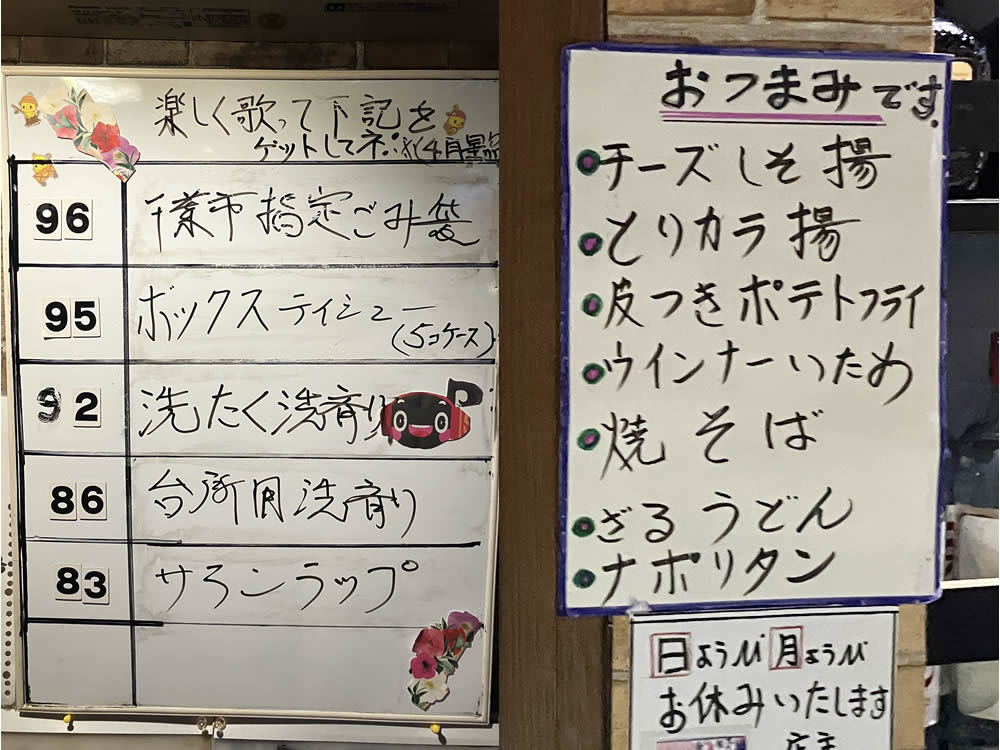 楽しく歌って下記を
ゲットしてネ
96 千葉市指定ごみ袋
95 ボックスティシュー
(5コケース)
92 洗たく洗剤
86 台所用洗剤
83 サランラップ
おつまみです.
チーズしそ揚
とりカラ揚
皮つきポテトフライ
ウインナーいため
焼そば
ざるうどん
ナポリタン
日ようび月ようび
お休みいたします
店主